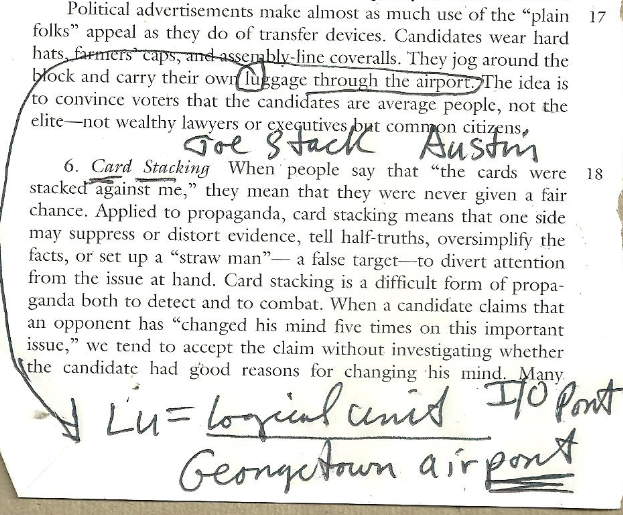 Political advertisements make almost as much use of the “plain 17
folks” appeal as they do of transfer devices. Candidates wear hard
hats, farmers’ caps, and assembly-line coveralls. They jog around the
block and carry their own luggage through the airport. The idea is
to convince voters that the candidates are average people, not the
elite—not wealthy lawyers or executives but common citizens.
Joe Stack Austin
6. Card Stacking When people say that “the cards were 18
stacked against me,” they mean that they were never given a fair
chance. Applied to propaganda, card stacking means that one side
may suppress or distort evidence, tell half-truths, oversimplify the
facts, or set up a “straw man”— a false target—to divert attention
from the issue at hand. Card stacking is a difficult form of propa-
ganda both to detect and to combat. When a candidate claims that
an opponent has “changed his mind five times on this important
issue,” we tend to accept the claim without investigating whether
the candidate had good reasons for changing his mind. Many
Lu = Logical unit I/O Port
Georgetown airport